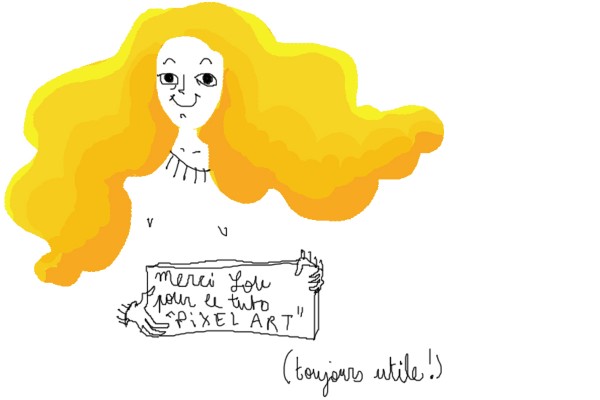 merci Lou
pour le tuto
"PiXEL ART"
(toujours utile!)